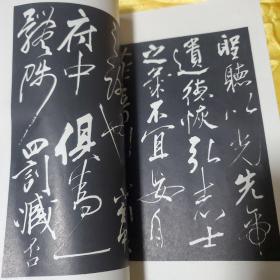 聖聽以光先帝
遺德恢弘志士
之氣不宜妄自
府中俱為一
體陟罰臧否